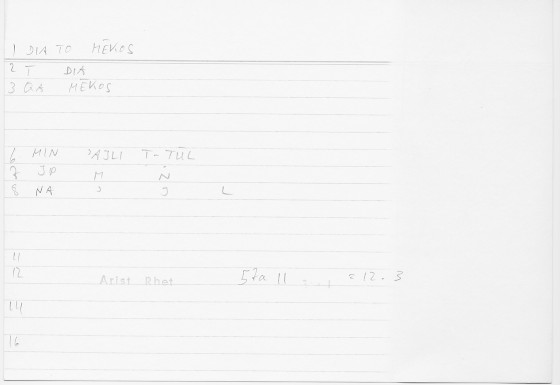 1 DIA TO MĒKOS
2 T DIA
3 QA MĒKOS
6 MIN ʾAJLI T-TŪL
7 JP M N
8 NA ʾ J L
11
12 Arist Rhet 57a 11 = 12-3
14
16